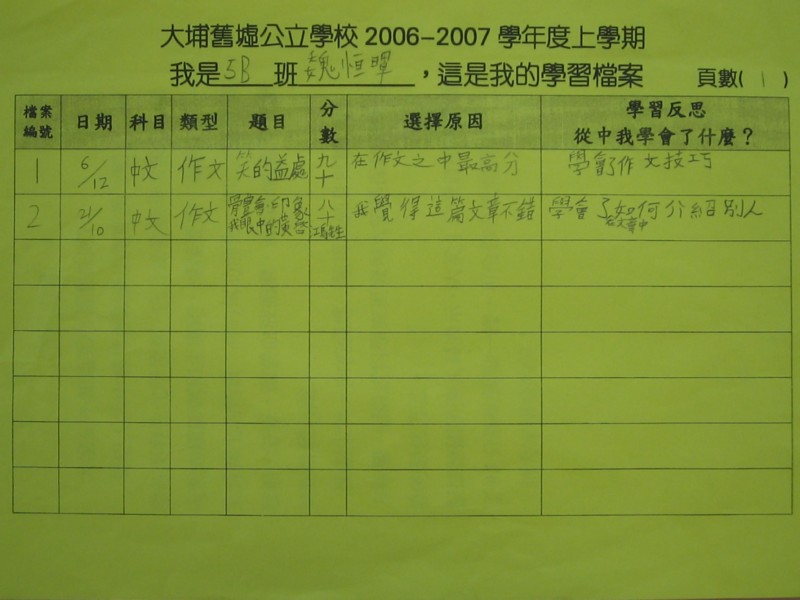 大埔舊墟公立學校 2006–2007 學年度上學期
我是 5B 班 魏恒暉，這是我的學習檔案 頁數( 1 )
檔案編號 日期 科目 類型 題目 分數 選擇原因 學習反思 從中我學會了什麼？
1 6/12 中文 作文 笑的益處 九十 在作文之中最高分 學會了作文技巧
2 2/10 中文 作文 印象 我眼中的黃 八十 我覺得這篇文章不錯 學會了如何在文章中介紹別人